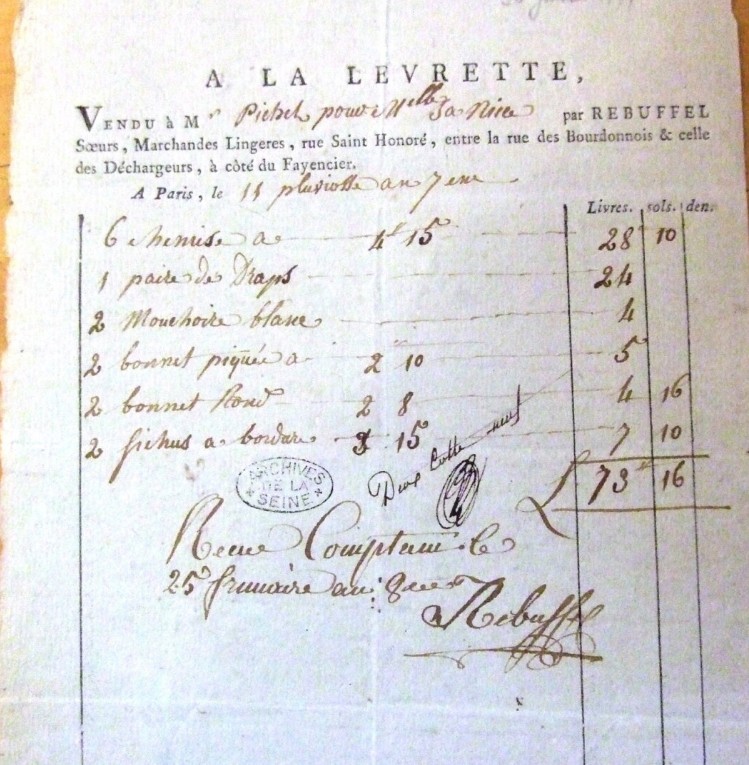 A LA LEVRETTE,
VENDU à Mr Pichet pour Melle Sa Niece par REBUFFEL
Sœurs, Marchandes Lingeres, rue Saint Honoré, entre la rue des Bourdonnois & celle
des Déchargeurs, à côté du Fayencier.
A Paris, le 11 pluviosse an 7eme
Livres. sols. den.
6 chemise a 4 15 28 10
1 paire de Draps 24
2 Mouchoire blanc 4
2 bonnet piquée a 2 10 5
2 bonnet Rond 2 8 4 16
2 fichus a bordure 3 15 7 10
Deux Cotte neuf
ARCHIVES DE LA SEINE
73 16
Recue Comptant le
25 frimaire an 8
Rebuffel